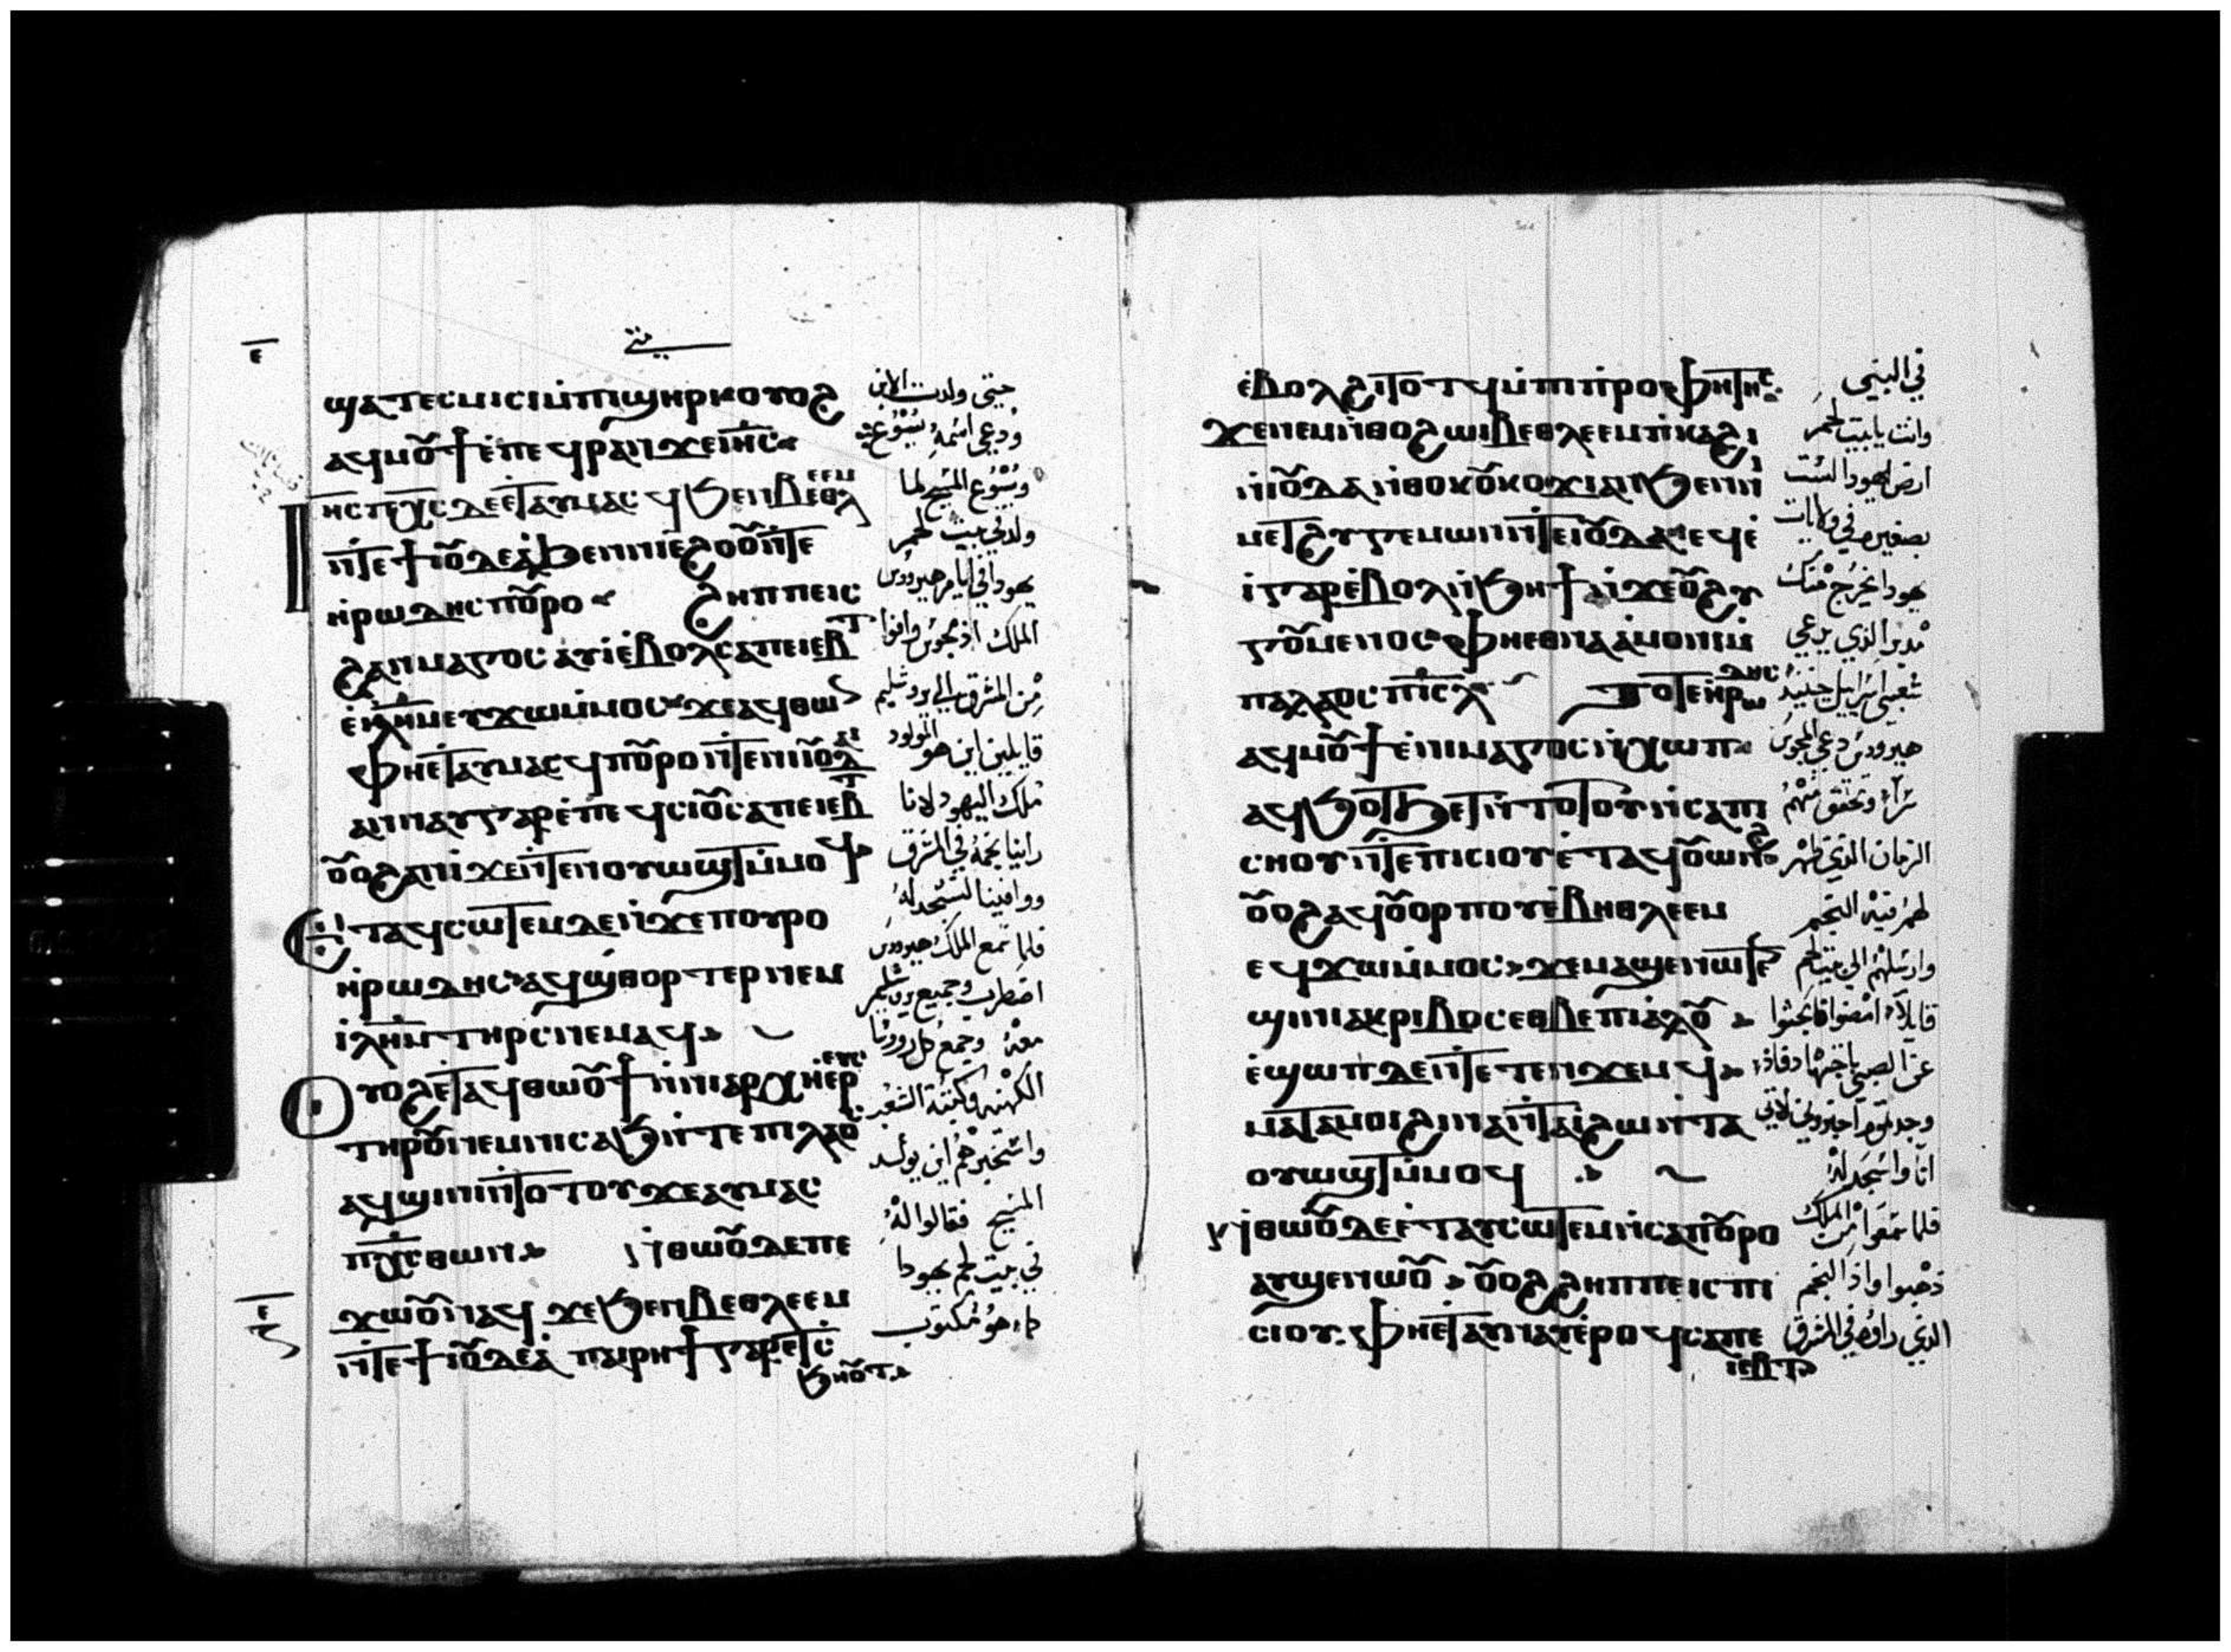 متى
ⲉ̅
ϣⲁⲧⲉⲥⲙⲓⲥⲓ ⲙ̀ⲡⲓϣⲏⲣⲓ ⲟⲩⲟϩ
ⲁϥⲙⲟ̅ϯ ⲉ̀ⲡⲉϥⲣⲁⲛ ϫⲉ ⲓⲏ̅ⲥ
ⲓⲏⲥ ⲡⲭ̅ⲥ ⲇⲉ ⲉⲧⲁⲩⲙⲁⲥϥ ϧⲉⲛ ⲃⲉⲑⲗⲉⲉⲙ
ⲛ̀ⲧⲉ ϯⲓⲟ̅ⲇⲉⲁ̀ ϧⲉⲛ ⲛⲓⲉ̀ϩⲟⲟ̅ ⲛ̀ⲧⲉ
ⲏ̀ⲣⲱⲇⲏⲥ ⲡⲟ̅ⲣⲟ ϩⲏⲡⲡⲉ ⲓⲥ
ϩⲁⲛⲙⲁⲅⲟⲥ ⲁⲩⲓ̀ ⲉ̀ⲃⲟⲗ ⲥⲁⲡⲉⲓⲉⲃⲧ
ⲉ̀ⲓⲗⲏ̅ⲙ ⲉⲩϫⲱ ⲙ̀ⲙⲟⲥ ϫⲉ ⲁϥⲑⲱⲛ
ⲫⲏⲉⲧⲁⲩⲙⲁⲥϥ ⲡⲟ̅ⲣⲟ ⲛ̀ⲧⲉ ⲛⲓⲓⲟ̅ⲇⲁⲓ
ⲁⲛⲛⲁⲩ ⲅⲁⲣ ⲉ̀ⲡⲉϥⲥⲓⲟ̅ ⲥⲁⲡⲉⲓⲉⲃⲧ
ⲟ̅ⲟϩ ⲁⲛⲓ̀ ϫⲉ ⲛ̀ⲧⲉⲛⲟⲩⲱϣⲧ ⲙ̀ⲙⲟϥ
ⲉ̀ⲧⲁϥⲥⲱⲧⲉⲙ ⲇⲉ ⲛ̀ϫⲉ ⲡⲟⲩⲣⲟ
ⲏ̀ⲣⲱⲇⲏⲥ ⲁϥϣⲑⲟⲣⲧⲉⲣ ⲛⲉⲙ
ⲓⲗⲏ̅ⲙ ⲧⲏⲣⲥ ⲛⲉⲙⲁϥ
ⲟⲩⲟϩ ⲉⲧⲁϥⲑⲱⲟ̅ϯ ⲛ̀ⲛⲓⲁⲣⲭⲏⲉⲣⲉⲩⲥ
ⲧⲏⲣⲟ̅ ⲛⲉⲙ ⲛⲓⲥⲁϧ ⲛ̀ⲧⲉ ⲡⲓⲗⲁⲟⲥ
ⲁϥϣⲓⲛⲓ ⲛ̀ⲧⲟⲧⲟⲩ ϫⲉ ⲁⲩⲙⲁⲥ
ⲡⲭ̅ⲥ ⲑⲱⲛ ⲛ̀ⲑⲱⲟ̅ ⲇⲉ ⲡⲉ
ϫⲱⲟ̅ ⲛⲁϥ ϫⲉ ϧⲉⲛ ⲃⲉⲑⲗⲉⲉⲙ
ⲛ̀ⲧⲉ ϯⲓⲟ̅ⲇⲉⲁ̀ ⲡⲁⲓⲣⲏϯ ⲅⲁⲣ ⲉⲧⲥ
ϧⲏⲟ̅ⲧ
حتى ولدت الابن
ودعى اسمه يسوع
ويسوع المسيح لما
ولد في بيت لحم
يهودا في ايام هيرودس
الملك اذ مجوس وافوا
من المشرق الى يروشليم
قايلين اين هو المولود
ملك اليهود لاننا
راينا نجمه في المشرق
ووافينا لنسجد له
فلما سمع الملك هيرودس
اضطرب وجميع يروشليم
معه وجمع كل روسا
الكهنه وكتبة الشعب
واستخبرهم اين يولد
المسيح فقالوا له
في بيت لحم يهودا
كما هو مكتوب
ⲉ̀ⲃⲟⲗ ϩⲓⲧⲟⲧϥ ⲙ̀ⲡⲓⲡ̀ⲣⲟⲫⲏⲧⲏⲥ
ϫⲉ ⲛⲉⲙ ⲛ̀ⲑⲟ ϩⲱⲓ ⲃⲉⲑⲗⲉⲉⲙ ⲡ̀ⲕⲁϩⲓ
ⲛ̀ⲓⲟ̅ⲇⲁ ⲛ̀ⲑⲟ ⲕⲟ̅ⲕⲟϫⲓ ⲁⲛ ϧⲉⲛ ⲛⲓ
ⲙⲉⲧϩⲩⲅⲉⲙⲱⲛ ⲛ̀ⲧⲉ ⲓⲟ̅ⲇⲁ ⲉϥⲉ̀
ⲓ̀ ⲅⲁⲣ ⲉ̀ⲃⲟⲗ ⲛ̀ϧⲏϯ ⲛ̀ϫⲉ ⲟ̅ϩⲩ
ⲅⲟ̅ⲙⲉⲛⲟⲥ ⲫⲏⲉⲑⲛⲁⲁ̀ⲙⲟⲛⲓ ⲙ̀
ⲡⲁⲗⲁⲟⲥ ⲡⲓⲥ̅ⲗ ⲧⲟⲧⲉ ⲏ̀ⲣⲱⲇⲏⲥ
ⲁϥⲙⲟ̅ϯ ⲉ̀ⲛⲓⲙⲁⲅⲟⲥ ⲛ̀ⲭⲱⲡ
ⲁϥϧⲟⲧϧⲉⲧ ⲛ̀ⲧⲟⲧⲟⲩ ⲛ̀ⲥⲁ ⲡⲓ
ⲥⲏⲟⲩ ⲛ̀ⲧⲉ ⲡⲓⲥⲓⲟⲩ ⲉ̀ⲧⲁϥⲟ̅ⲱⲛϩ
ⲟ̅ⲟϩ ⲁϥⲟ̅ⲟⲣⲡⲟⲩ ⲉ̀ⲃⲏⲑⲗⲉⲉⲙ
ⲉϥϫⲱ ⲙ̀ⲙⲟⲥ ϫⲉ ⲙⲁϣⲉⲛⲱⲧⲉⲛ
ϣⲓⲛⲓ ⲁⲕⲣⲓⲃⲟⲥ ⲉⲑⲃⲉ ⲡⲓⲁ̀ⲗⲟ̅
ⲉ̀ϣⲱⲡ ⲇⲉ ⲛ̀ⲧⲉⲧⲉⲛϫⲉⲙϥ
ⲙⲁⲧⲁⲙⲟⲓ ϩⲓⲛⲁ ⲛ̀ⲧⲁⲓ̀ ϩⲱ ⲛ̀ⲧⲁ
ⲟⲩⲱϣⲧ ⲙ̀ⲙⲟϥ
ⲛ̀ⲑⲱⲟ̅ ⲇⲉ ⲉ̀ⲧⲁⲩⲥⲱⲧⲉⲙ ⲛ̀ⲥⲁ ⲡⲟ̅ⲣⲟ
ⲁⲩϣⲉⲛⲱⲟ̅ ⲟ̅ⲟϩ ϩⲏⲡⲡⲉ ⲓⲥ ⲡⲓ
ⲥⲓⲟⲩ ⲫⲏⲉⲧⲁⲩⲛⲁⲩ ⲉ̀ⲣⲟϥ ⲥⲁⲡⲉ
ⲓⲉⲃⲧ
في النبي
وانت يا بيت لحم
ارض يهودا لست
بصغيره في ولايات
يهودا يخرج منك
مدبر الذي يرعى
شعبي اسراييل حينيذ
هيرودس دعى المجوس
سرا وتحقق منهم
الزمان الذي ظهر
لهم فيه النجم
وارسلهم الى بيت لحم
قايلا امضوا فابحثوا
عن الصبي باجتهاد فاذا
وجدتموه اخبروني لاتي
انا واسجد له
فلما سمعوا من الملك
ذهبوا واذا النجم
الذي راوه في المشرق